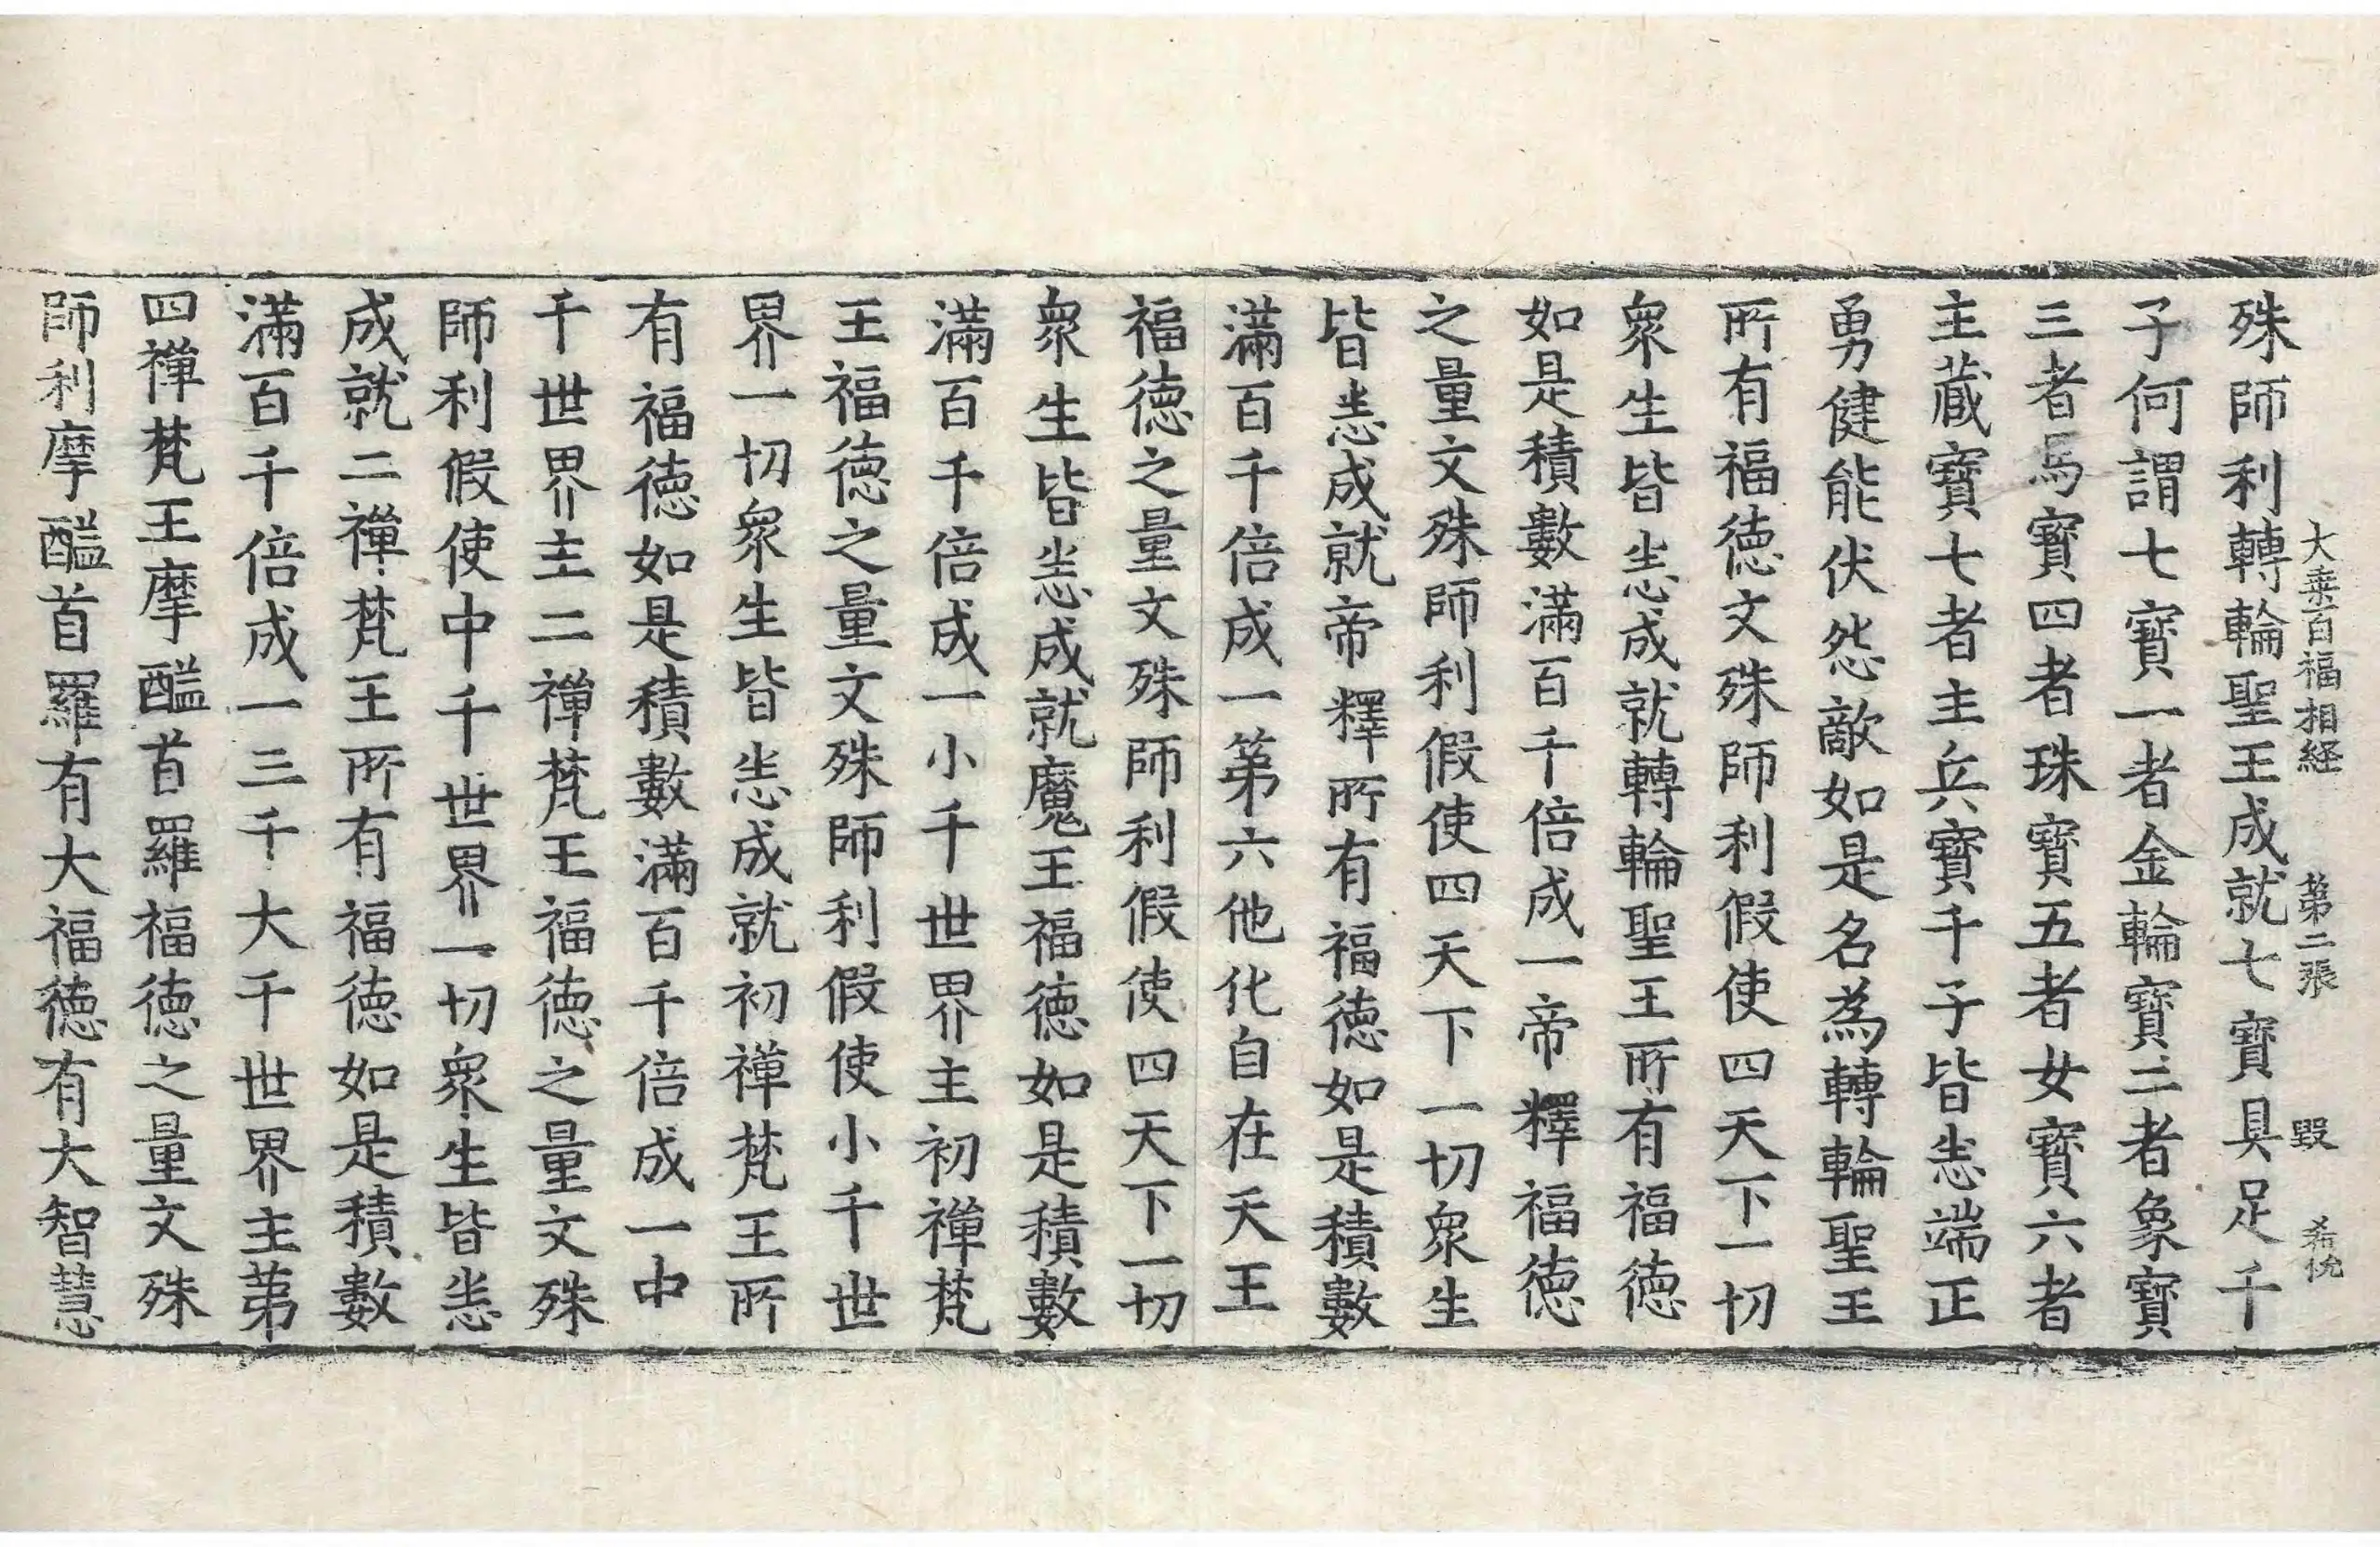 大乗百福相経 第二張 毀 希
殊師利轉輪聖王成就七寶具足千
子何謂七寶一者金輪寶二者象寶
三者馬寶四者珠寶五者女寶六者
主蔵寶七者主兵寶千子皆悉端正
勇健能伏怨敵如是名為轉輪聖王
所有福徳文殊師利假使四天下一切
衆生皆悉成就轉輪聖王所有福徳
如是積數滿百千倍成一帝釋福徳
之量文殊師利假使四天下一切衆生
皆悉成就帝釋所有福徳如是積數
滿百千倍成一第六他化自在天王
福徳之量文殊師利假使四天下一切
衆生皆悉成就魔王福徳如是積數
滿百千倍成一小千世界主初禪梵
王福徳之量文殊師利假使小千世
界一切衆生皆悉成就初禪梵王所
有福徳如是積數滿百千倍成一中
千世界主二禪梵王福徳之量文殊
師利假使中千世界一切衆生皆悉
成就二禪梵王所有福徳如是積數
滿百千倍成一三千大千世界主第
四禪梵王摩醯首羅福徳之量文殊
師利摩醯首羅有大福徳有大智慧